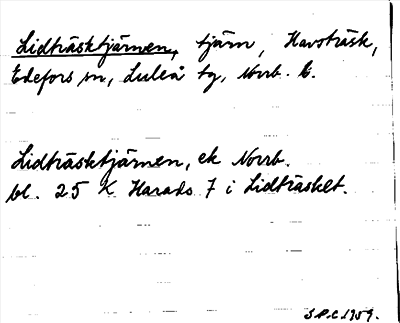 Lidträsktjärnen, tjärn, Havsträsk,
Edefors sn, Luleå tg, Norrb. l.
Lidträsktjärnen, ek Norrb.
bl. 25 K Harads 7 i Lidträsket.
S.P.C. 1959.